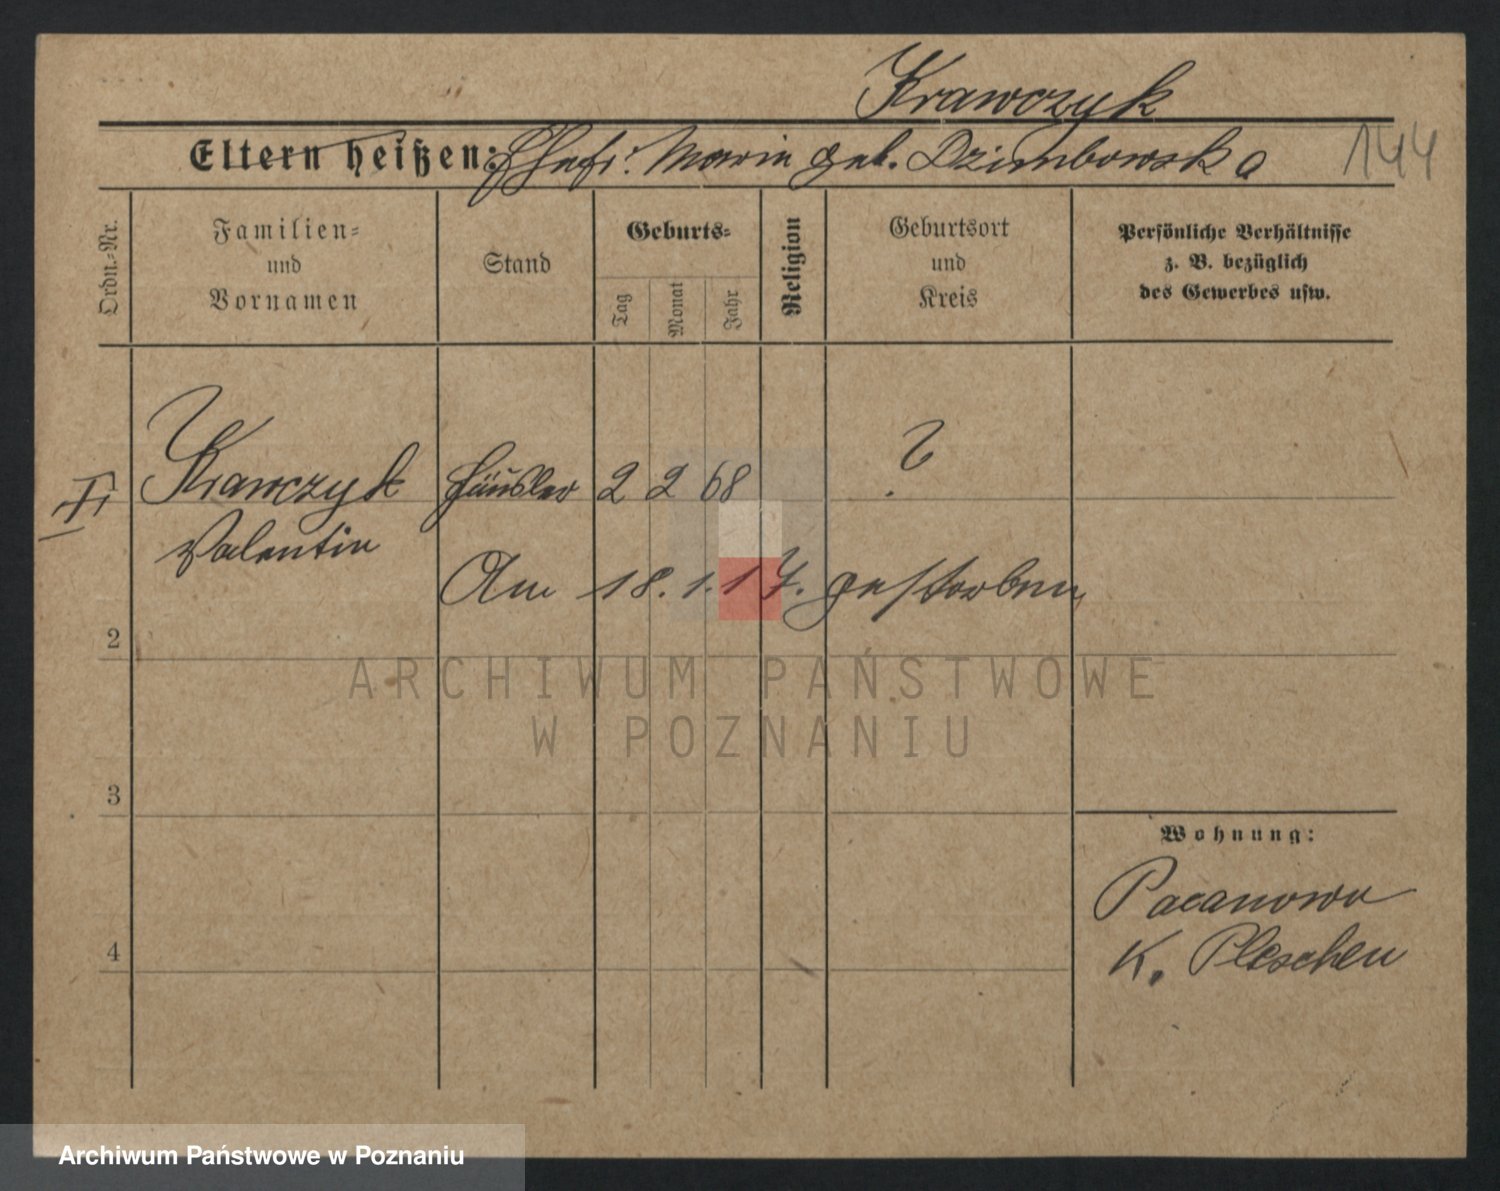 Krawczyk
Eltern heißen: Ehefr: Marie geb. Dzimbowska 144
Ordn.-Nr.
Familien-
und
Vornamen
Stand
Geburts-
Tag
Monat
Jahr
Religion
Geburtsort
und
Kreis
Persönliche Verhältnisse
z. B. bezüglich
des Gewerbes usw.
Krawczyk Häusler 2 2 68 ?
Valentin
Am 18. 1. 17. gestorben
2
3
4
Wohnung:
Pacanowo
K. Pleschen
ARCHIWUM PAŃSTWOWE
W POZNANIU
Archiwum Państwowe w Poznaniu